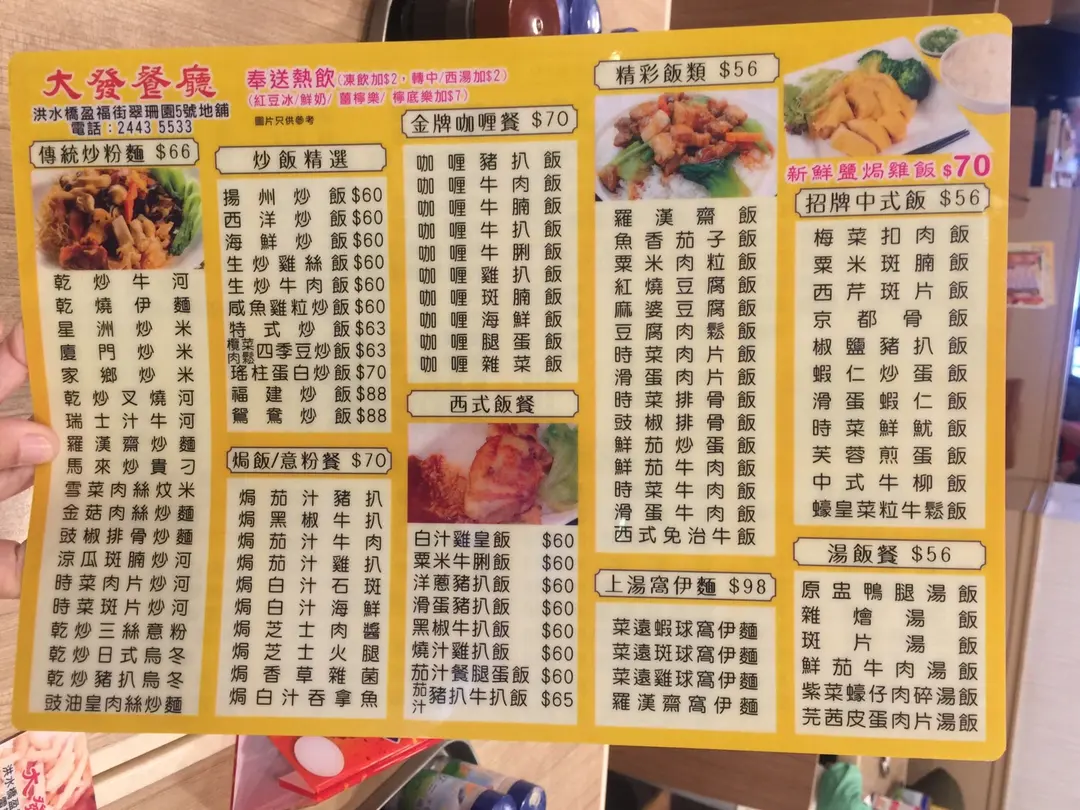 大發餐廳
洪水橋盈福街翠珊園5號地舖
電話：2443 5533
奉送熱飲(凍飲加$2，轉中/西湯加$2)
(紅豆冰/鮮奶/薑檸樂/檸底樂加$7)
圖片只供參考
傳統炒粉麵 $66
乾炒牛河
乾燒伊麵
星洲炒米
廈門炒米
家鄉炒米
乾炒叉燒河
瑞士汁牛河
羅漢齋炒麵
馬來炒貴刁
雪菜肉絲炆米
金菇肉絲炒麵
豉椒排骨炒麵
涼瓜斑腩炒河
時菜肉片炒河
時菜斑片炒河
乾炒三絲意粉
乾炒日式烏冬
乾炒豬扒烏冬
豉油皇肉絲炒麵
炒飯精選
揚州炒飯 $60
西洋炒飯 $60
海鮮炒飯 $60
生炒雞絲飯 $60
生炒牛肉飯 $60
咸魚雞粒炒飯 $60
特式炒飯 $63
欖菜肉鬆四季豆炒飯 $63
瑤柱蛋白炒飯 $70
福建炒飯 $88
鴛鴦炒飯 $88
焗飯/意粉餐 $70
焗茄汁豬扒
焗黑椒牛扒
焗茄汁牛肉
焗茄汁雞扒
焗白汁石斑
焗白汁海鮮
焗芝士肉醬
焗芝士火腿
焗香草雜菌
焗白汁吞拿魚
金牌咖喱餐 $70
咖喱豬扒飯
咖喱牛肉飯
咖喱牛腩飯
咖喱牛扒飯
咖喱牛脷飯
咖喱雞扒飯
咖喱斑腩飯
咖喱海鮮飯
咖喱腿蛋飯
咖喱雜菜飯
西式飯餐
白汁雞皇飯 $60
粟米牛脷飯 $60
洋蔥豬扒飯 $60
滑蛋豬扒飯 $60
黑椒牛扒飯 $60
燒汁雞扒飯 $60
茄汁餐腿蛋飯 $60
茄汁豬扒牛扒飯 $65
精彩飯類 $56
羅漢齋飯
魚香茄子飯
粟米肉粒飯
紅燒豆腐飯
麻婆豆腐飯
豆腐肉鬆飯
時菜肉片飯
滑蛋肉片飯
時菜排骨飯
豉椒排骨飯
鮮茄炒蛋飯
鮮茄牛肉飯
時菜牛肉飯
滑蛋牛肉飯
西式免治牛飯
上湯窩伊麵 $98
菜遠蝦球窩伊麵
菜遠斑球窩伊麵
菜遠雞球窩伊麵
羅漢齋窩伊麵
新鮮鹽焗雞飯 $70
招牌中式飯 $56
梅菜扣肉飯
粟米斑腩飯
西芹斑片飯
京都骨飯
椒鹽豬扒飯
蝦仁炒蛋飯
滑蛋蝦仁飯
時菜鮮魷飯
芙蓉煎蛋飯
中式牛柳飯
蠔皇菜粒牛鬆飯
湯飯餐 $56
原盅鴨腿湯飯
雜燴湯飯
斑片湯飯
鮮茄牛肉湯飯
紫菜蠔仔肉碎湯飯
芫茜皮蛋肉片湯飯